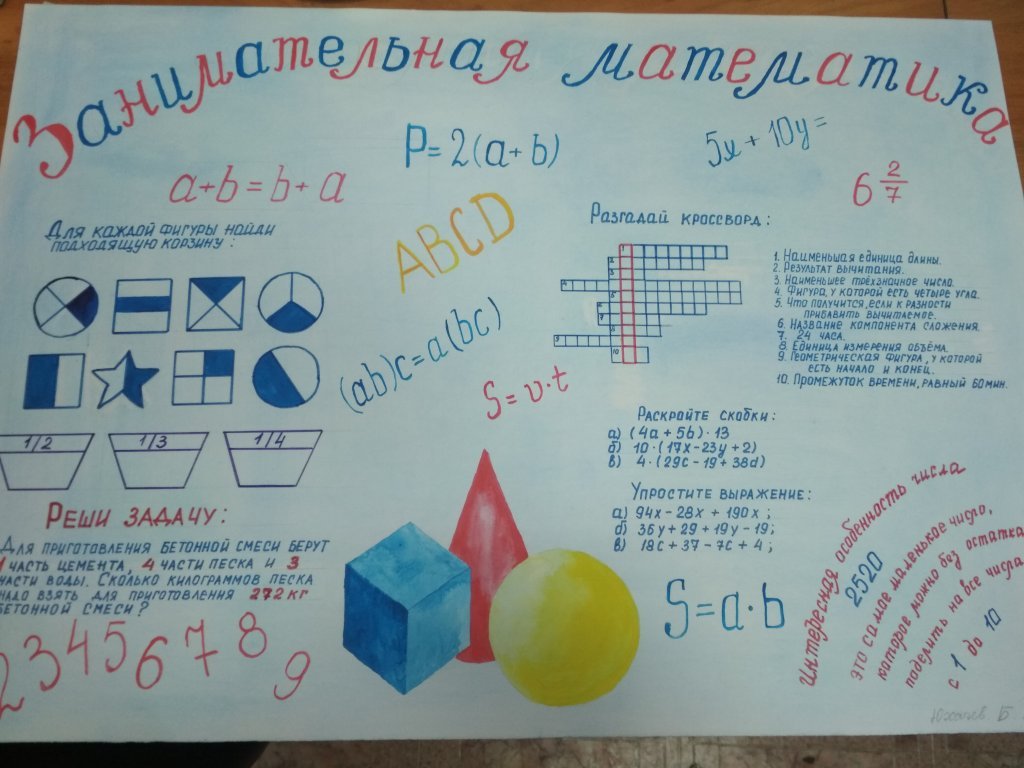 Занимательная математика
P=2(a+b)
5x+10y=
a+b=b+a
6 2/7
Для каждой фигуры найди
подходящую корзину:
ABCD
(ab)c=a(bc)
S=υ·t
1/2
1/3
1/4
Разгадай кроссворд:
1. Наименьшая единица длины.
2. Результат вычитания.
3. Наименьшее трёхзначное число.
4. Фигура, у которой есть четыре угла.
5. Что получится, если к разности
прибавить вычитаемое.
6. Название компонента сложения.
7. 24 часа.
8. Единица измерения объёма.
9. Геометрическая фигура, у которой
есть начало и конец.
10. Промежуток времени, равный 60 мин.
Раскройте скобки:
а) (4a+5b)·13
б) 10·(17x-23y+2)
в) 4·(29c-19+38d)
Упростите выражение:
а) 94x-28x+190x;
б) 36y+29+19y-19;
в) 18c+37-7c+4;
Реши задачу:
Для приготовления бетонной смеси берут
1 часть цемента, 4 части песка и 3
части воды. Сколько килограммов песка
надо взять для приготовления 272 кг
бетонной смеси?
2 3 4 5 6 7 8 9
S=a·b
Интересная особенность числа
2520
это самое маленькое число,
которое можно без остатка
поделить на все числа
с 1 до 10